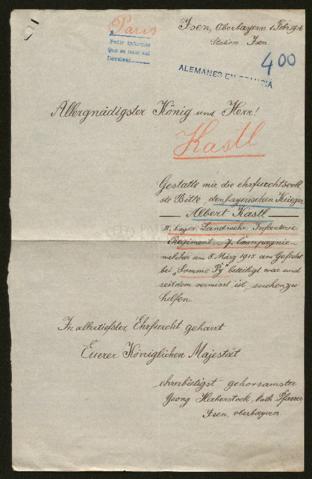 Isen, Oberbayern 1 Febr. 1916
Station Isen.
Paris
Pedir informes
Que se haga así
400
ALEMANES EN FRANCIA
Allergnädigster König und Herr!
Kastl
Gestatte mir die ehrfurchtsvoll
ste Bitte den bayerischen Krieger
Albert Kastl
bayer. Landwehr Infanterie
Regiment 7. Compagnie
welcher am 8. März 1915 am Gefecht
bei "Somme Py" beteiligt war und
seitdem vermisst ist, suchen zu
helfen.
In allertiefster Ehrfurcht geharrt
Euerer Königlichen Majestät
ehrerbietigst gehorsamster
Georg Pfarrer
Isen, Oberbayern